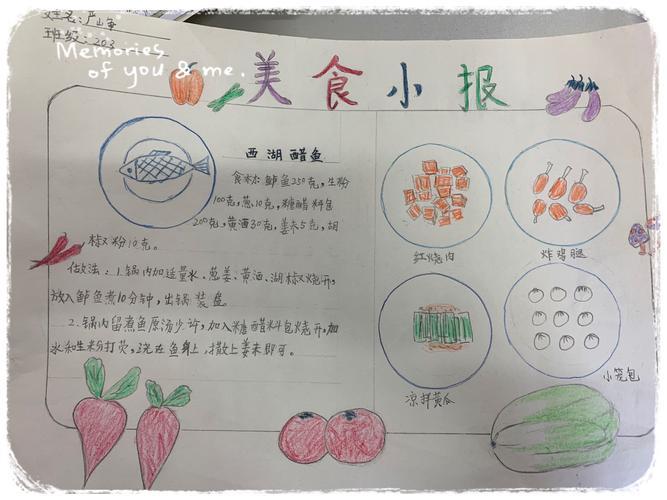 姓名:严山
班级:203
Memories
of you & me.
美食小报
西湖醋鱼
食材:鲈鱼250克,生粉
100克,葱10克,糖醋料包
200克,黄酒30克,姜末5克,胡
椒粉10克。
做法:1.锅内加适量水、葱姜、黄酒、湖椒烧开,
放入鲈鱼煮10分钟,出锅装盘。
2.锅内留煮鱼原汤少许,加入糖醋料包烧开,加
水和生粉打芡,浇在鱼身上,撒上姜末即可。
红烧肉
炸鸡腿
凉拌黄瓜
小笼包